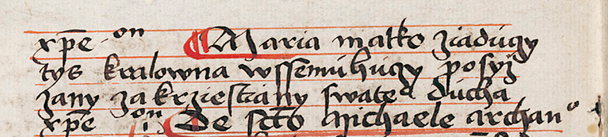 xp̅e · on ¶ Maria matko ziaducy
tys kralowna wssemuhucy posyz
zany zakrziestiany swate° ducha
xp̅e on De scto Michaele archan°